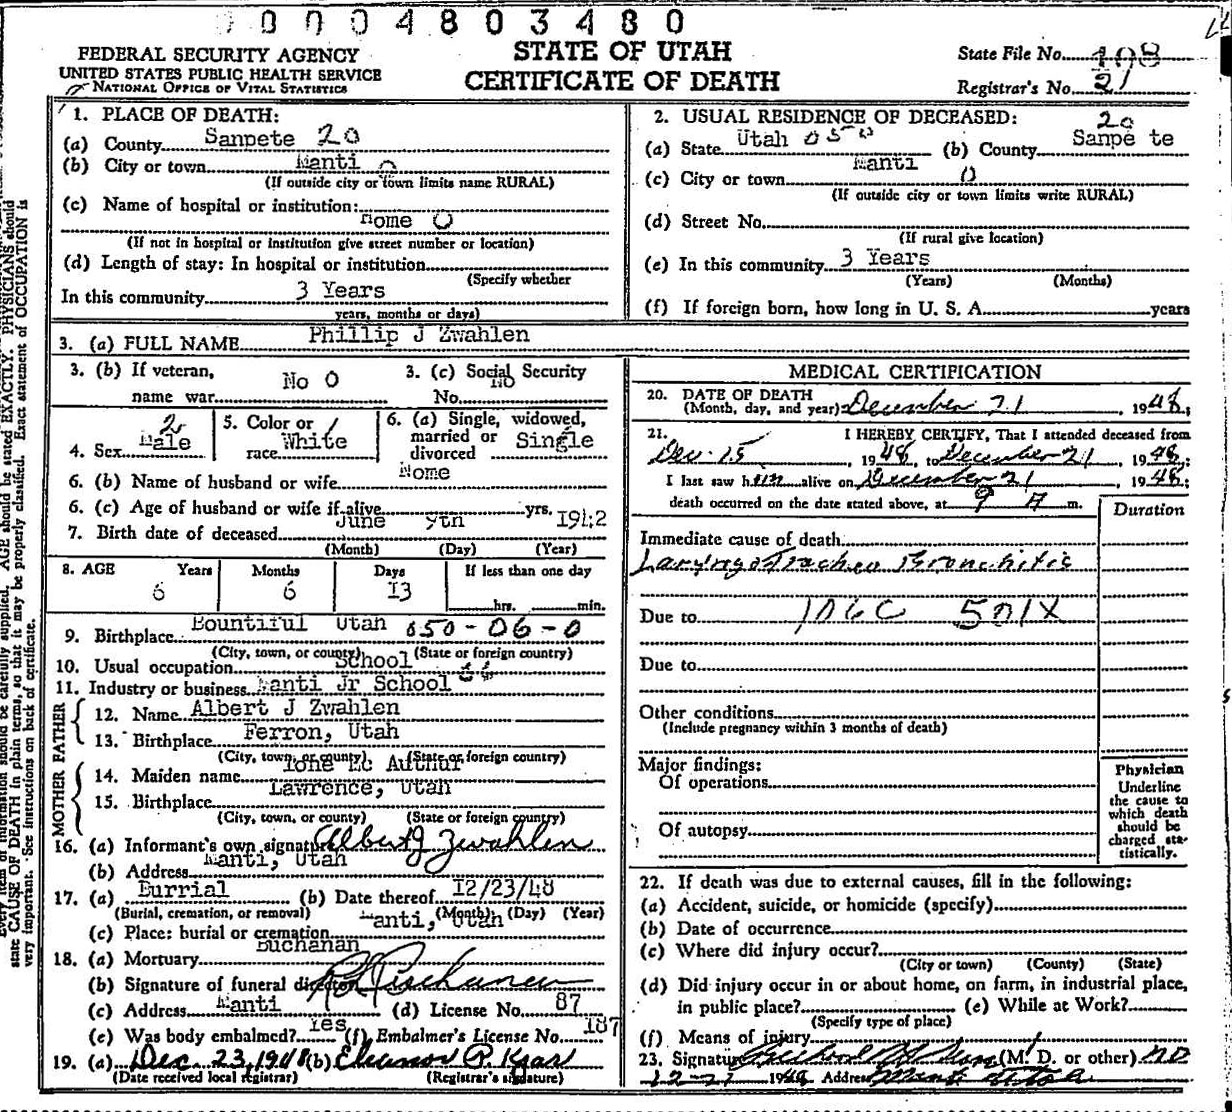 00004803480
FEDERAL SECURITY AGENCY
UNITED STATES PUBLIC HEALTH SERVICE
NATIONAL OFFICE OF VITAL STATISTICS
STATE OF UTAH
CERTIFICATE OF DEATH
State File No. 108
Registrar's No. 21
1. PLACE OF DEATH:
(a) County Sanpete 20
(b) City or town Manti 0
(If outside city or town limits name RURAL)
(c) Name of hospital or institution:
Home 0
(If not in hospital or institution give street number or location)
(d) Length of stay: In hospital or institution
(Specify whether
In this community 3 Years
years, months or days)
2. USUAL RESIDENCE OF DECEASED:
(a) State Utah 050 (b) County Sanpe te 20
(c) City or town Manti 0
(If outside city or town limits write RURAL)
(d) Street No.
(If rural give location)
(e) In this community 3 Years
(Years) (Months)
(f) If foreign born, how long in U. S. A. years
3. (a) FULL NAME Phillip J Zwahlen
3. (b) If veteran, name war No 0
3. (c) Social Security No. No
4. Sex Male 2
5. Color or race White 1
6. (a) Single, widowed, married or divorced Single
6. (b) Name of husband or wife None
6. (c) Age of husband or wife if alive yrs.
7. Birth date of deceased June 7th 1942
(Month) (Day) (Year)
8. AGE Years Months Days If less than one day
6 6 13 hrs. min.
9. Birthplace Bountiful Utah 650-06-0
(City, town, or county) (State or foreign country)
10. Usual occupation School
11. Industry or business Manti Jr School
FATHER
12. Name Albert J Zwahlen
13. Birthplace Ferron, Utah
(City, town, or county) (State or foreign country)
MOTHER
14. Maiden name Ione Mc Authur
15. Birthplace Lawrence, Utah
(City, town, or county) (State or foreign country)
16. (a) Informant's own signature Albert J Zwahlen
(b) Address Manti, Utah
17. (a) Burrial (b) Date thereof 12/23/48
(Burial, cremation, or removal) (Month) (Day) (Year)
(c) Place: burial or cremation Manti, Utah
18. (a) Mortuary Buchanan
(b) Signature of funeral director
(c) Address Manti (d) License No. 87
(e) Was body embalmed? Yes (f) Embalmer's License No. 187
19. (a) Dec. 23, 1948 (b) Eleanor P.
(Date received local registrar) (Registrar's signature)
MEDICAL CERTIFICATION
20. DATE OF DEATH
(Month, day, and year) December 21, 1948;
21. I HEREBY CERTIFY, That I attended deceased from
Dec. 15, 1948, to December 21, 1948;
I last saw him alive on December 21, 1948;
death occurred on the date stated above, at 9 A m.
Duration
Immediate cause of death
Laryngo Tracheo Bronchitis
Due to 106C 501X
Due to
Other conditions
(Include pregnancy within 3 months of death)
Major findings:
Of operations
Of autopsy
Physician
Underline
the cause to
which death
should be
charged sta-
tistically.
22. If death was due to external causes, fill in the following:
(a) Accident, suicide, or homicide (specify)
(b) Date of occurrence
(c) Where did injury occur?
(City or town) (County) (State)
(d) Did injury occur in or about home, on farm, in industrial place,
in public place? (e) While at Work?
(Specify type of place)
(f) Means of injury
23. Signature (M. D. or other) MD
12-21 1948 Address Manti Utah
state CAUSE OF DEATH in plain terms, so that it may be properly classified. Exact statement of OCCUPATION is
very important. See instructions on back of certificate.